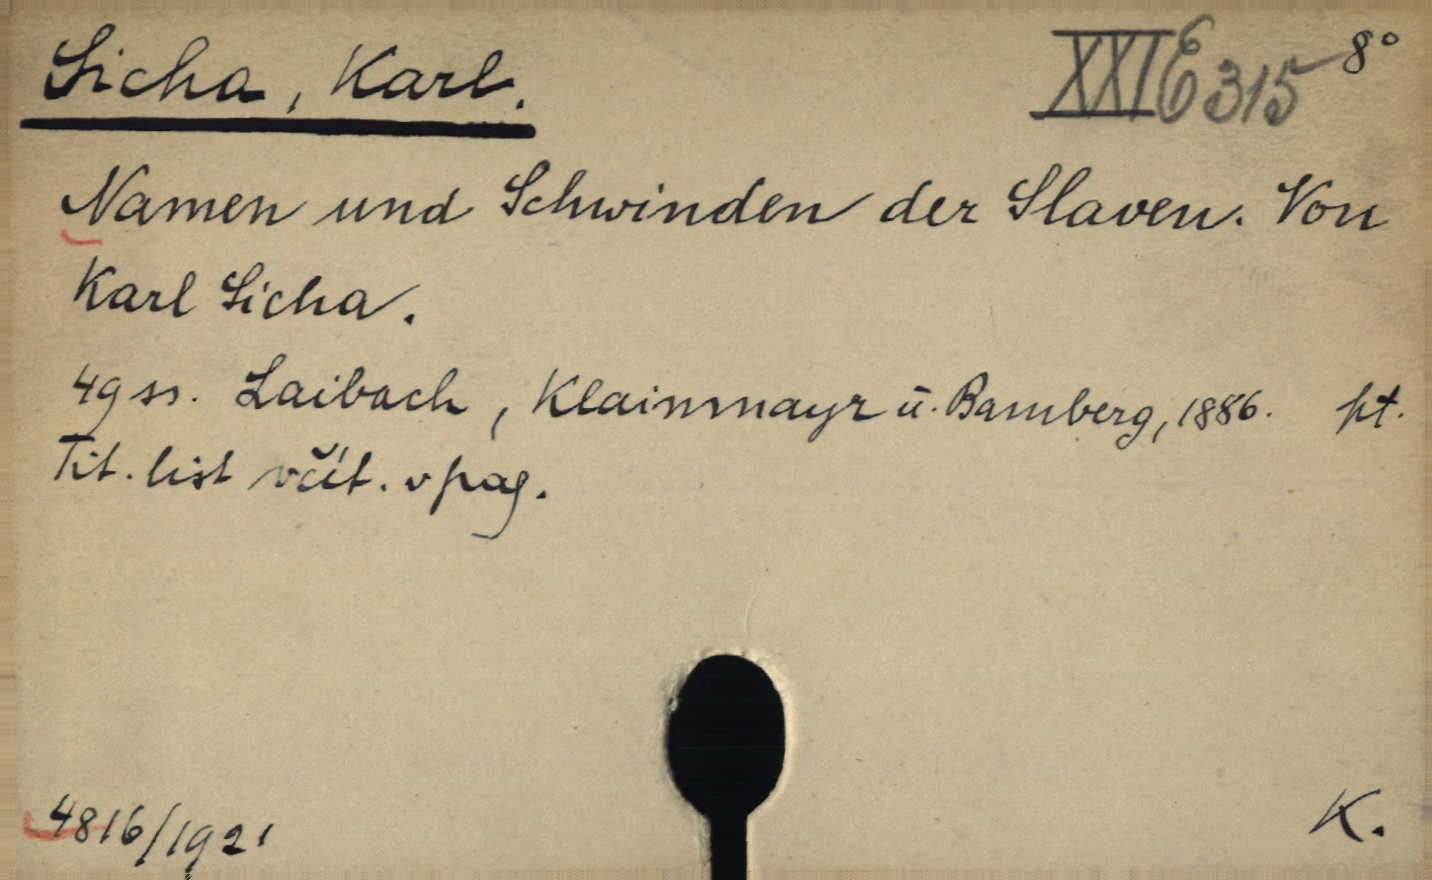 Sicha, Karl.
XXI E 315 8°
Namen und Schwinden der Slaven. Von
Karl Sicha.
49 ss. Laibach, Klainmayr u. Bamberg, 1886. pt.
Tit. list včít. v pag.
4816/1921
K.